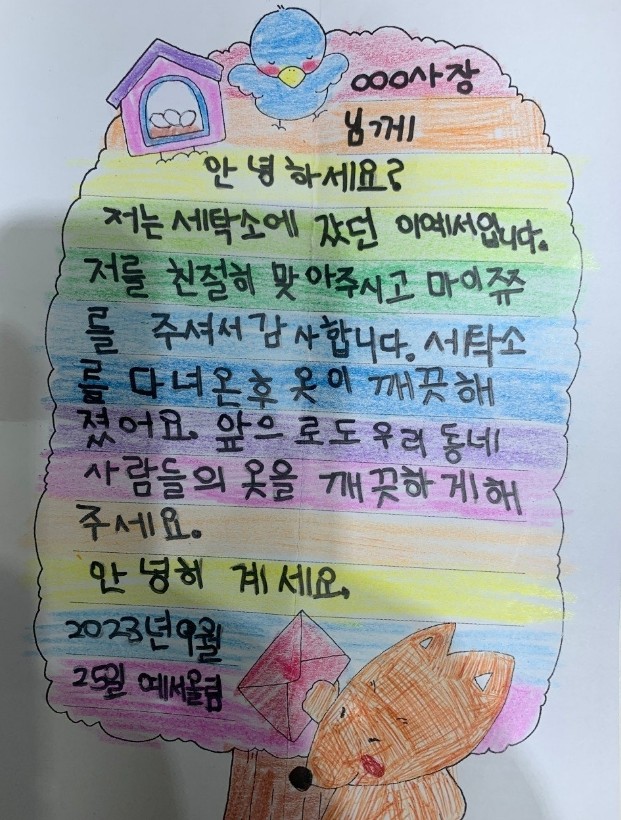 ooo사장
님께
안녕하세요?
저는 세탁소에 갔던 이예서입니다.
저를 친절히 맞아주시고 마이쮸
를 주셔서 감사합니다. 세탁소
를 다녀온후 옷이 깨끗해
졌어요. 앞으로도 우리 동네
사람들의 옷을 깨끗하게 해
주세요.
안녕히 계세요.
2023년 9월
25일 예서올림